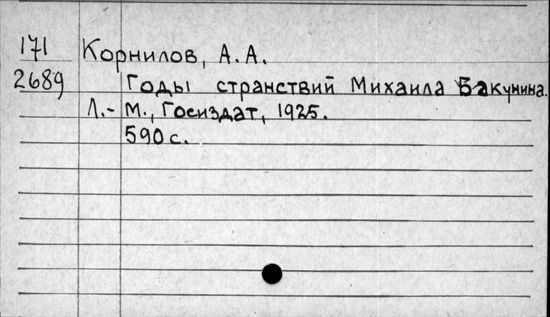 171 Корнилов, А.А.
2689 Годы странствий Михаила Бакунина.
Л.- М., Госиздат, 1925.
590 с.